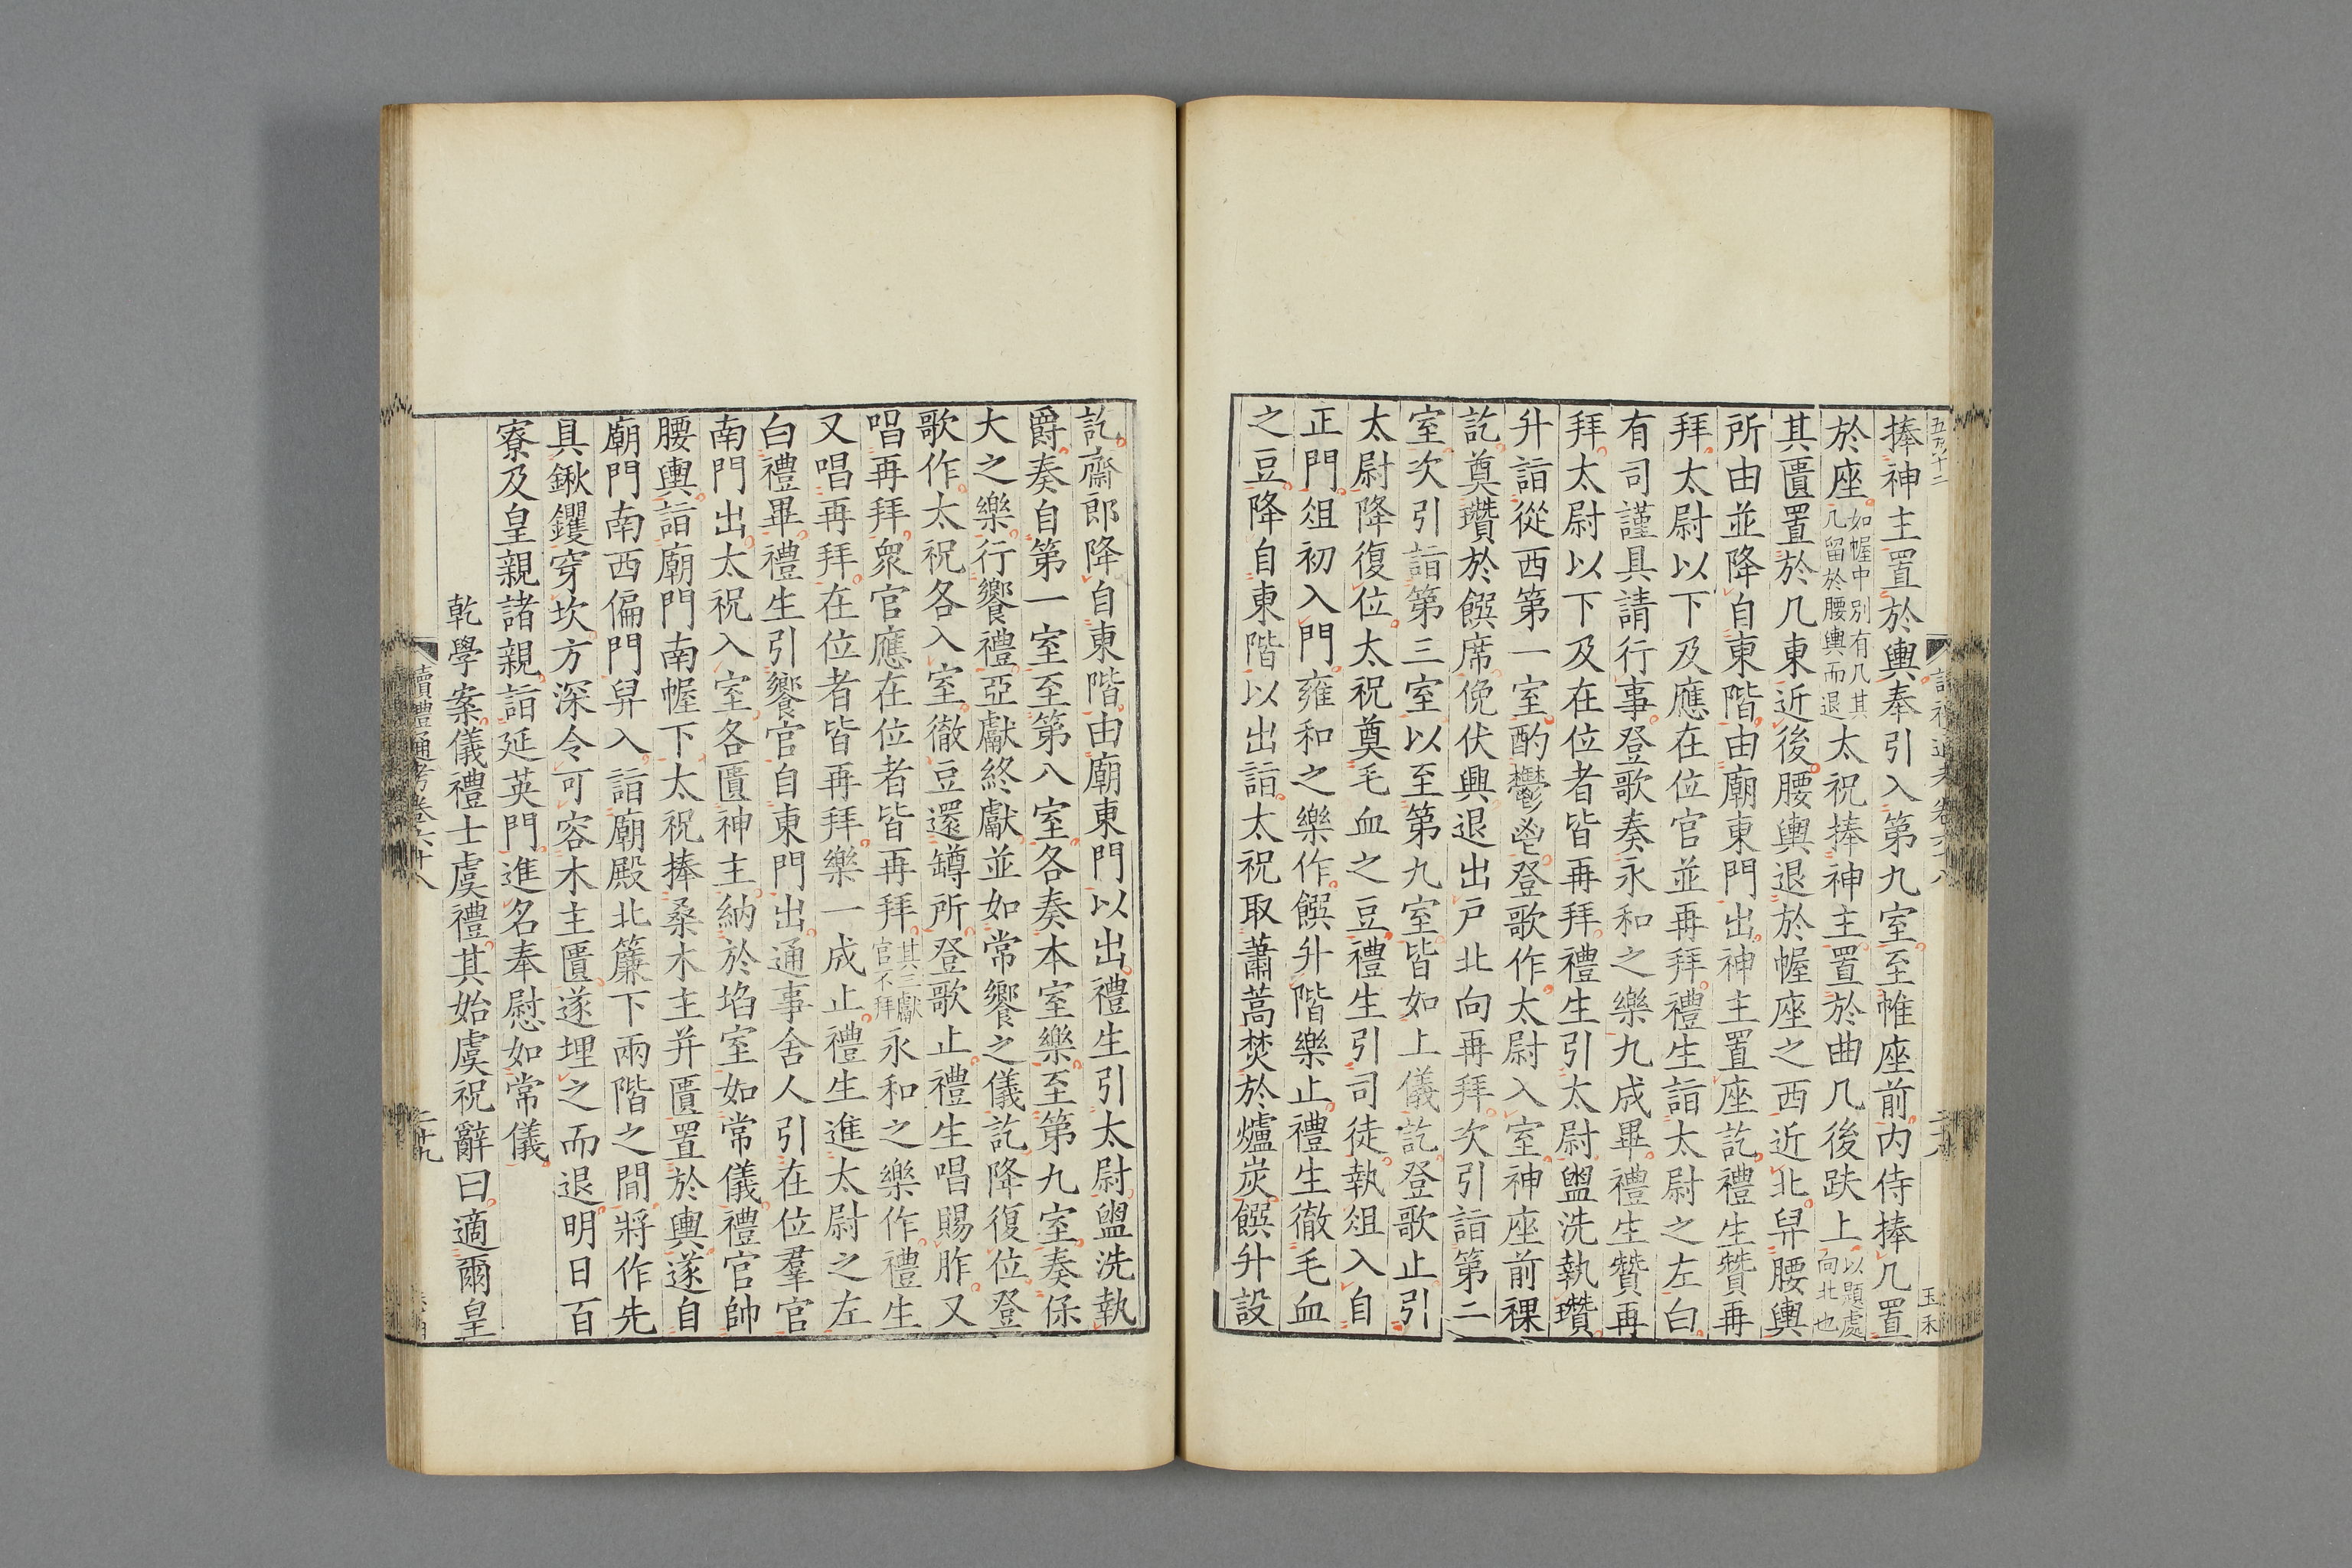 捧神主置於輿奉引入第九室至帷座前内侍捧几置
於座如幄中別有几其几留於腰輿而退太祝捧神主置於曲几後趺上以題處向北也
其匱置於几東近後腰輿退於幄座之西近北舁腰輿
所由並降自東階由廟東門出神主置座訖禮生贊再
拜太尉以下及應在位官並再拜禮生詣太尉之左白
有司謹具請行事登歌奏永和之樂九成畢禮生贊再
拜太尉以下及在位者皆再拜禮生引太尉盥洗執瓚
升詣從西第一室酌鬱鬯登歌作太尉入室神座前祼
訖奠瓚於饌席俛伏興退出戸北向再拜次引詣第二
室次引詣第三室以至第九室皆如上儀訖登歌止引
太尉降復位太祝奠毛血之豆禮生引司徒執俎入自
正門俎初入門雍和之樂作饌升階樂止禮生徹毛血
之豆降自東階以出詣太祝取蕭蒿焚於爐炭饌升設
訖齋郎降自東階由廟東門以出禮生引太尉盥洗執
爵奏自第一室至第八室各奏本室樂至第九室奏保
大之樂行饗禮亞獻終獻並如常饗之儀訖降復位登
歌作太祝各入室徹豆還罇所登歌止禮生唱賜胙又
唱再拜衆官應在位者皆再拜其三獻官不拜永和之樂作禮生
又唱再拜在位者皆再拜樂一成止禮生進太尉之左
白禮畢禮生引饗官自東門出通事舍人引在位羣官
南門出太祝入室各匱神主納於埳室如常儀禮官帥
腰輿詣廟門南幄下太祝捧桑木主并匱置於輿遂自
廟門南西偏門舁入詣廟殿北簾下兩階之間將作先
具鍬钁穿坎方深令可容木主匱遂埋之而退明日百
寮及皇親諸親詣延英門進名奉慰如常儀
乾學案儀禮士虞禮其始虞祝辭曰適爾皇
讀禮通考卷六十八